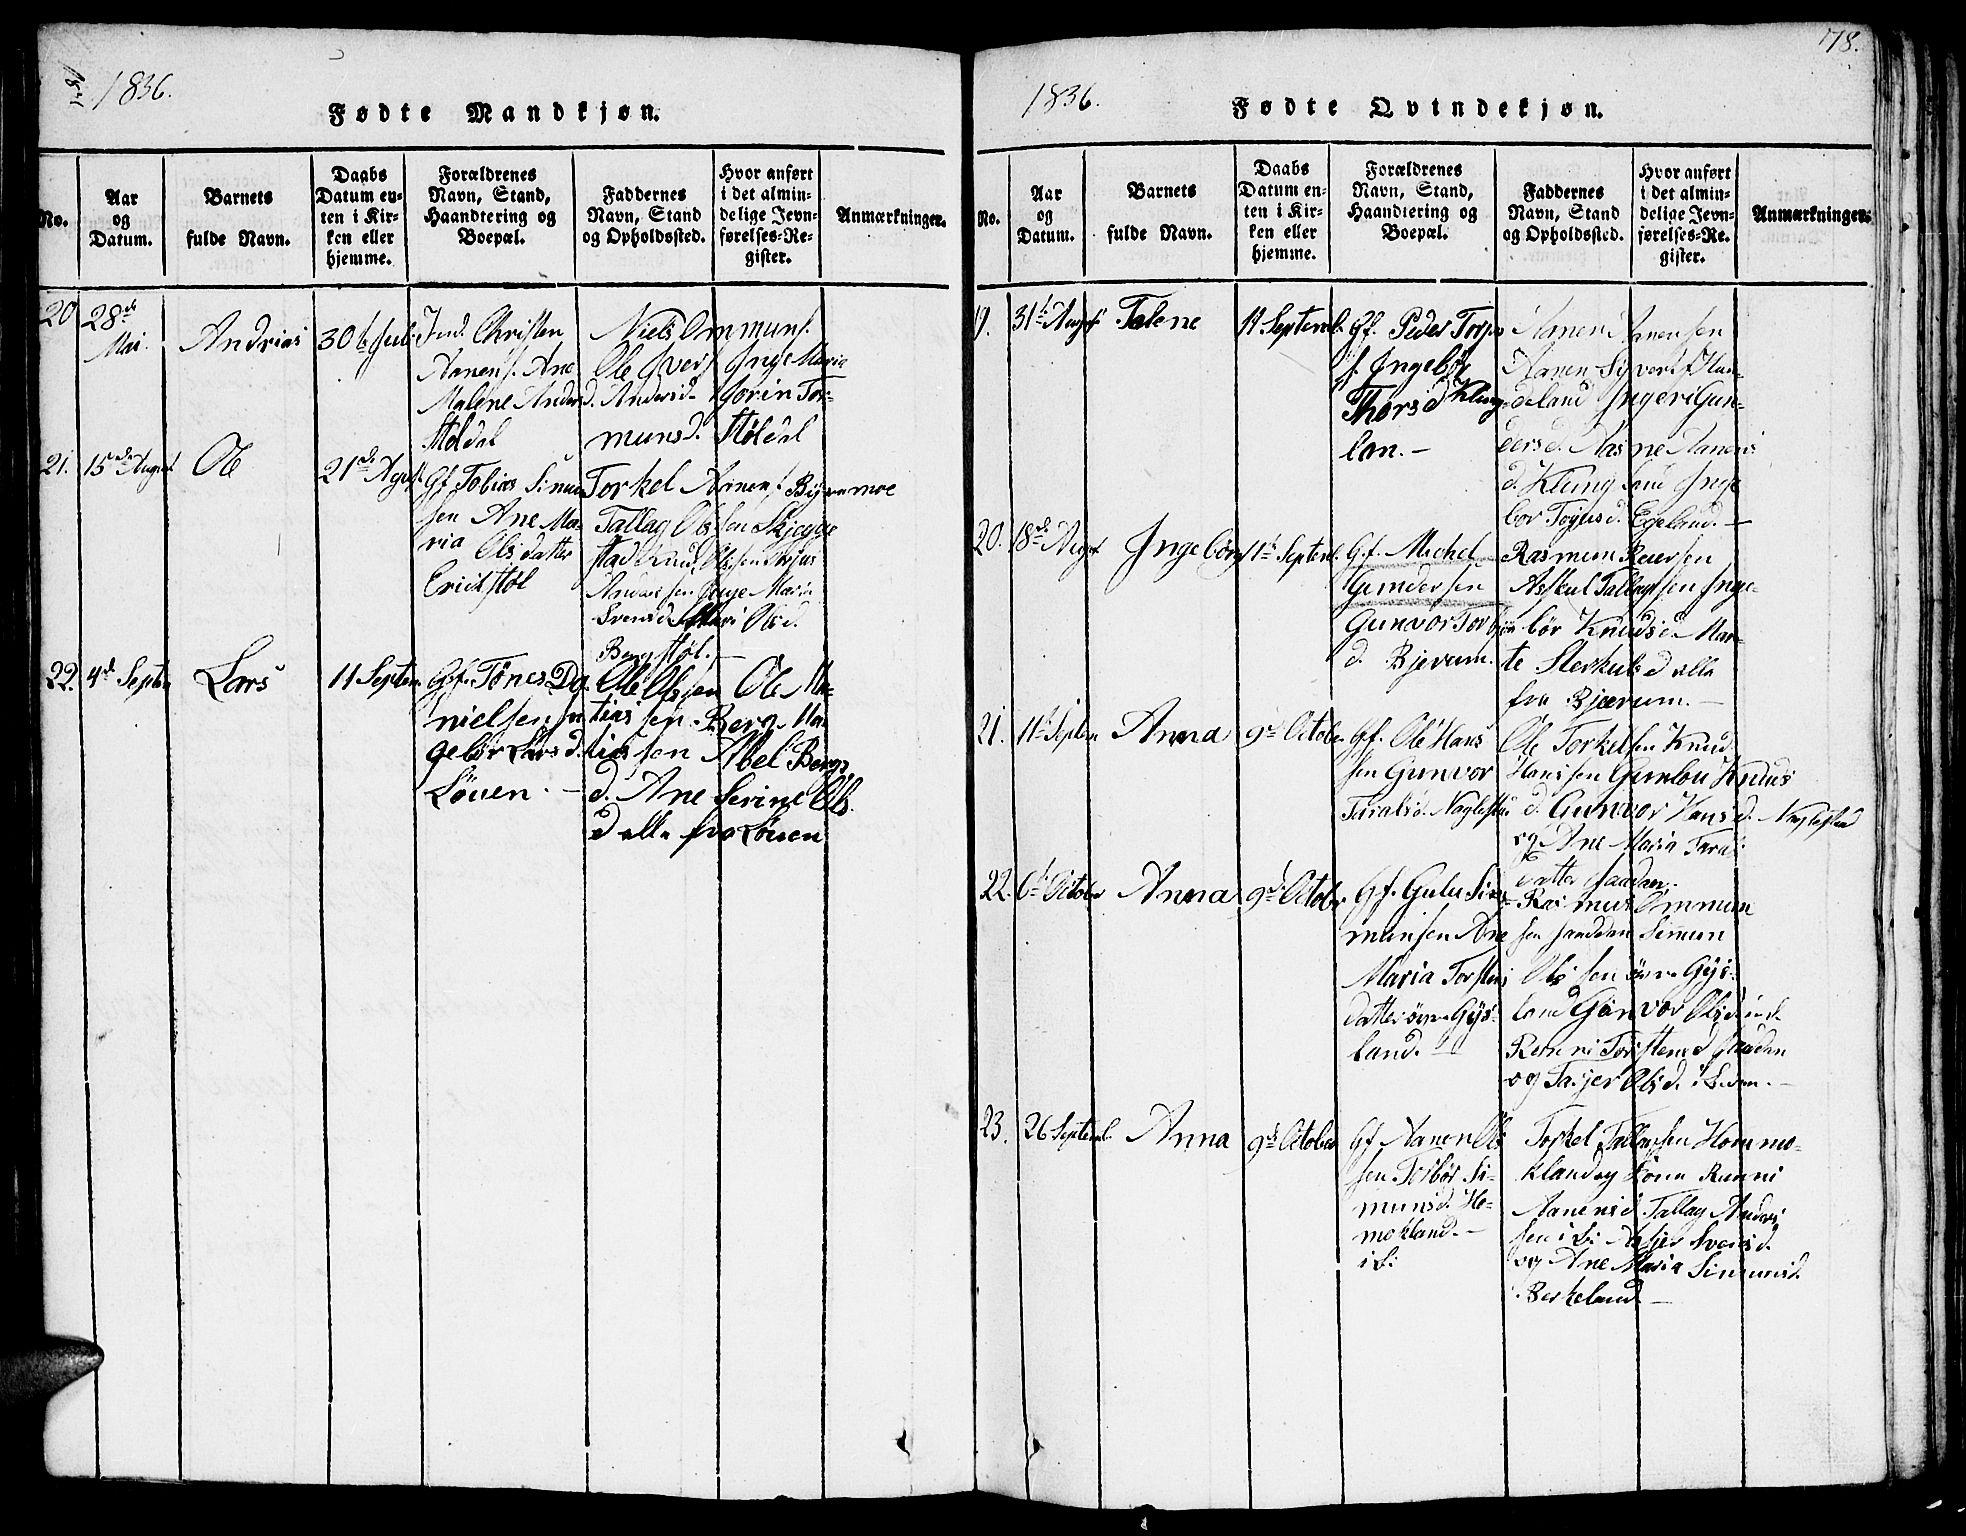 1836.
Fødte Mandkjøn.
No.
Aar
og
Datum.
Barnets
fulde Navn.
Daabs
Datum en-
ten i Kir-
ken eller
hjemme.
Forældrenes
Navn, Stand,
Haandtering og
Boepæl.
Faddernes
Navn, Stand
og Opholdssted.
Hvor anført
i det almin-
delige Jevn-
førelses-Re-
gister.
Anmærkninger.
20
28de
Mai.
Andrias
30te Juli
Ind. Christen
Aanens. Ane
Malene Anders
Støldal
Niels Ommuns.
Ole Ivers. Inge Maria
d. Andersd. Gorin Tor-
munsd. Støldal
21.
15de August
Ole
21de Agust
Gf. Tobias Simun
sen Ane Ma-
ria Olsdatter
Erichstøl
Torkel Aanens. Byremoe
Tallag Olssen Skjegge
stad Knud Olssen
Anders sen Inge Maria
Svensd. Mari Olsd.
Bergstøl.
22.
4de Septbr
Lars
11 Septem
Gf. Tønes Da-
nielsen In
gebør Larsd.
Løuen.
Ole Olssen Ole Ma-
tias sen Berg Ma
tias sen Abel Bergs
d. Ane Serine Ols
d alle fra Løuen
178.
1836.
Fødte Qvindekjøn.
No.
Aar
og
Datum.
Barnets
fulde Navn.
Daabs
Datum en-
ten i Kir-
ken eller
hjemme.
Forældrenes
Navn, Stand,
Haandtering og
Boepæl.
Faddernes
Navn, Stand
og Opholdssted.
Hvor anført
i det almin-
delige Jevn-
førelses-Re-
gister.
Anmærkninger.
19.
31te August
Talene
11 Septemb.
Gf. Peder Torjus
s. Ingebør
Thorsd Klung-
lan.
Aanen Aanensen
Aanen Syverts. Hun-
deland Ingeri Gun-
dersd. Aasne Aanens
d. Klungland Inge
bor Tojusd. Egeland.
20.
18de August
Ingebørg
11te Septemb.
Gf. Michel
Gundersen
Gunvor Torbjøn
d. Bjerum.
Rasmun Reiersen
Asskul Tallagssen Inge-
bør Knudsd. Mar-
te Sterkulsd alle
fra Bjærum.
21.
11te Septem
Anna
9de October
Gf. Ole Hans
sen Gunvor
Taralsd. Naglestad
Ole Torkelsen Knud
Hanssen Gunlou Knuds
d. Gunvor Hansd. Naglestad
og Ane Maria Tarals
datter Haadan.
22.
6te October
Anna
9de October
Gf. Gulu Sim-
munsen Ane
Maria Torstens
datter øvre Gys-
land.
Rasmus Ommun
sen Haadan Simun
Olssen øvre Gys-
land Gunvor Olsd. ind
Renni Torstensd Haadan
og Tarjer Olsd. i
23.
26 Septemb
Anna
9de October
Gf Aanen Ols
sen Torbør Si-
munsd. Ho-
mekland.
i S:
Torkel Tallagsen Homme-
kland og Kone Renni
Aanensd. Tallag Anders
sen i S: Asjer Svensd.
og Ane Maria Simunsd.
Berkeland